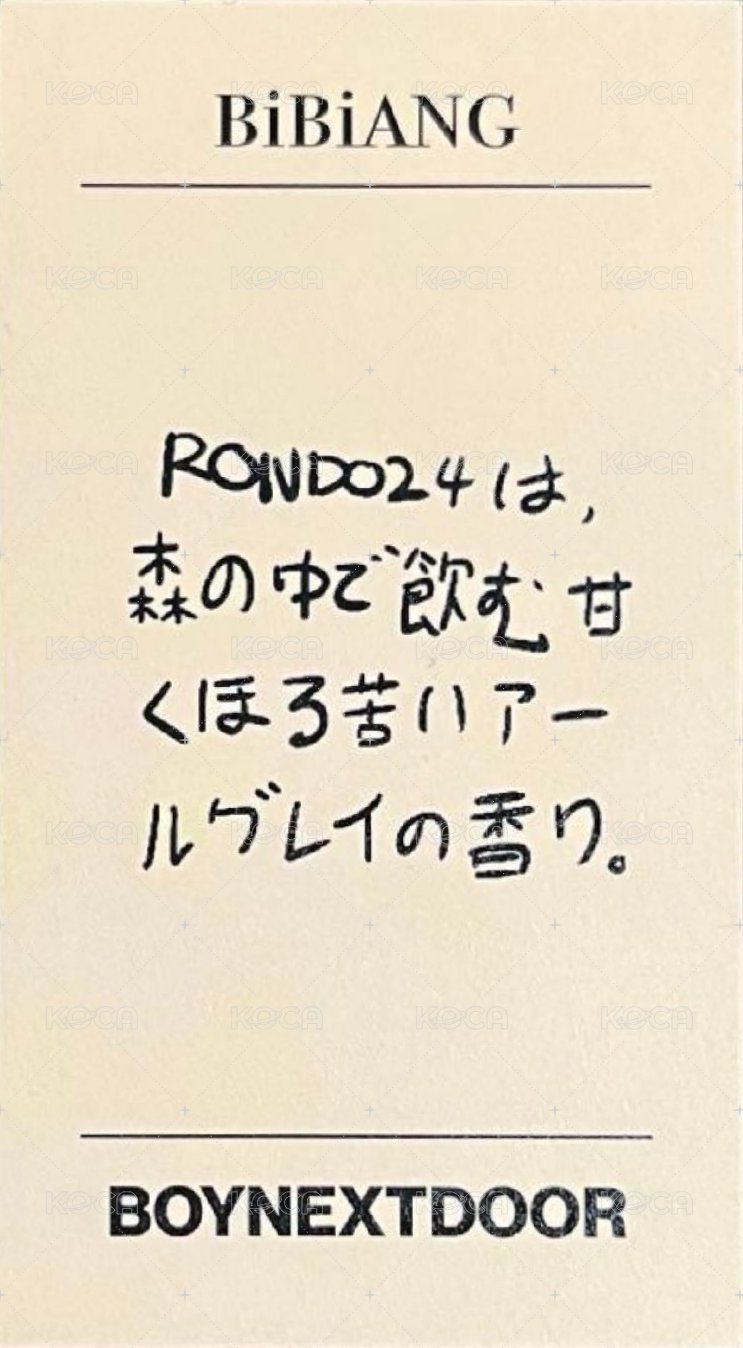 BiBiANG
RONDO24は,
森の中で飲む甘
くほろ苦いアー
ルグレイの香り。
BOYNEXTDOOR